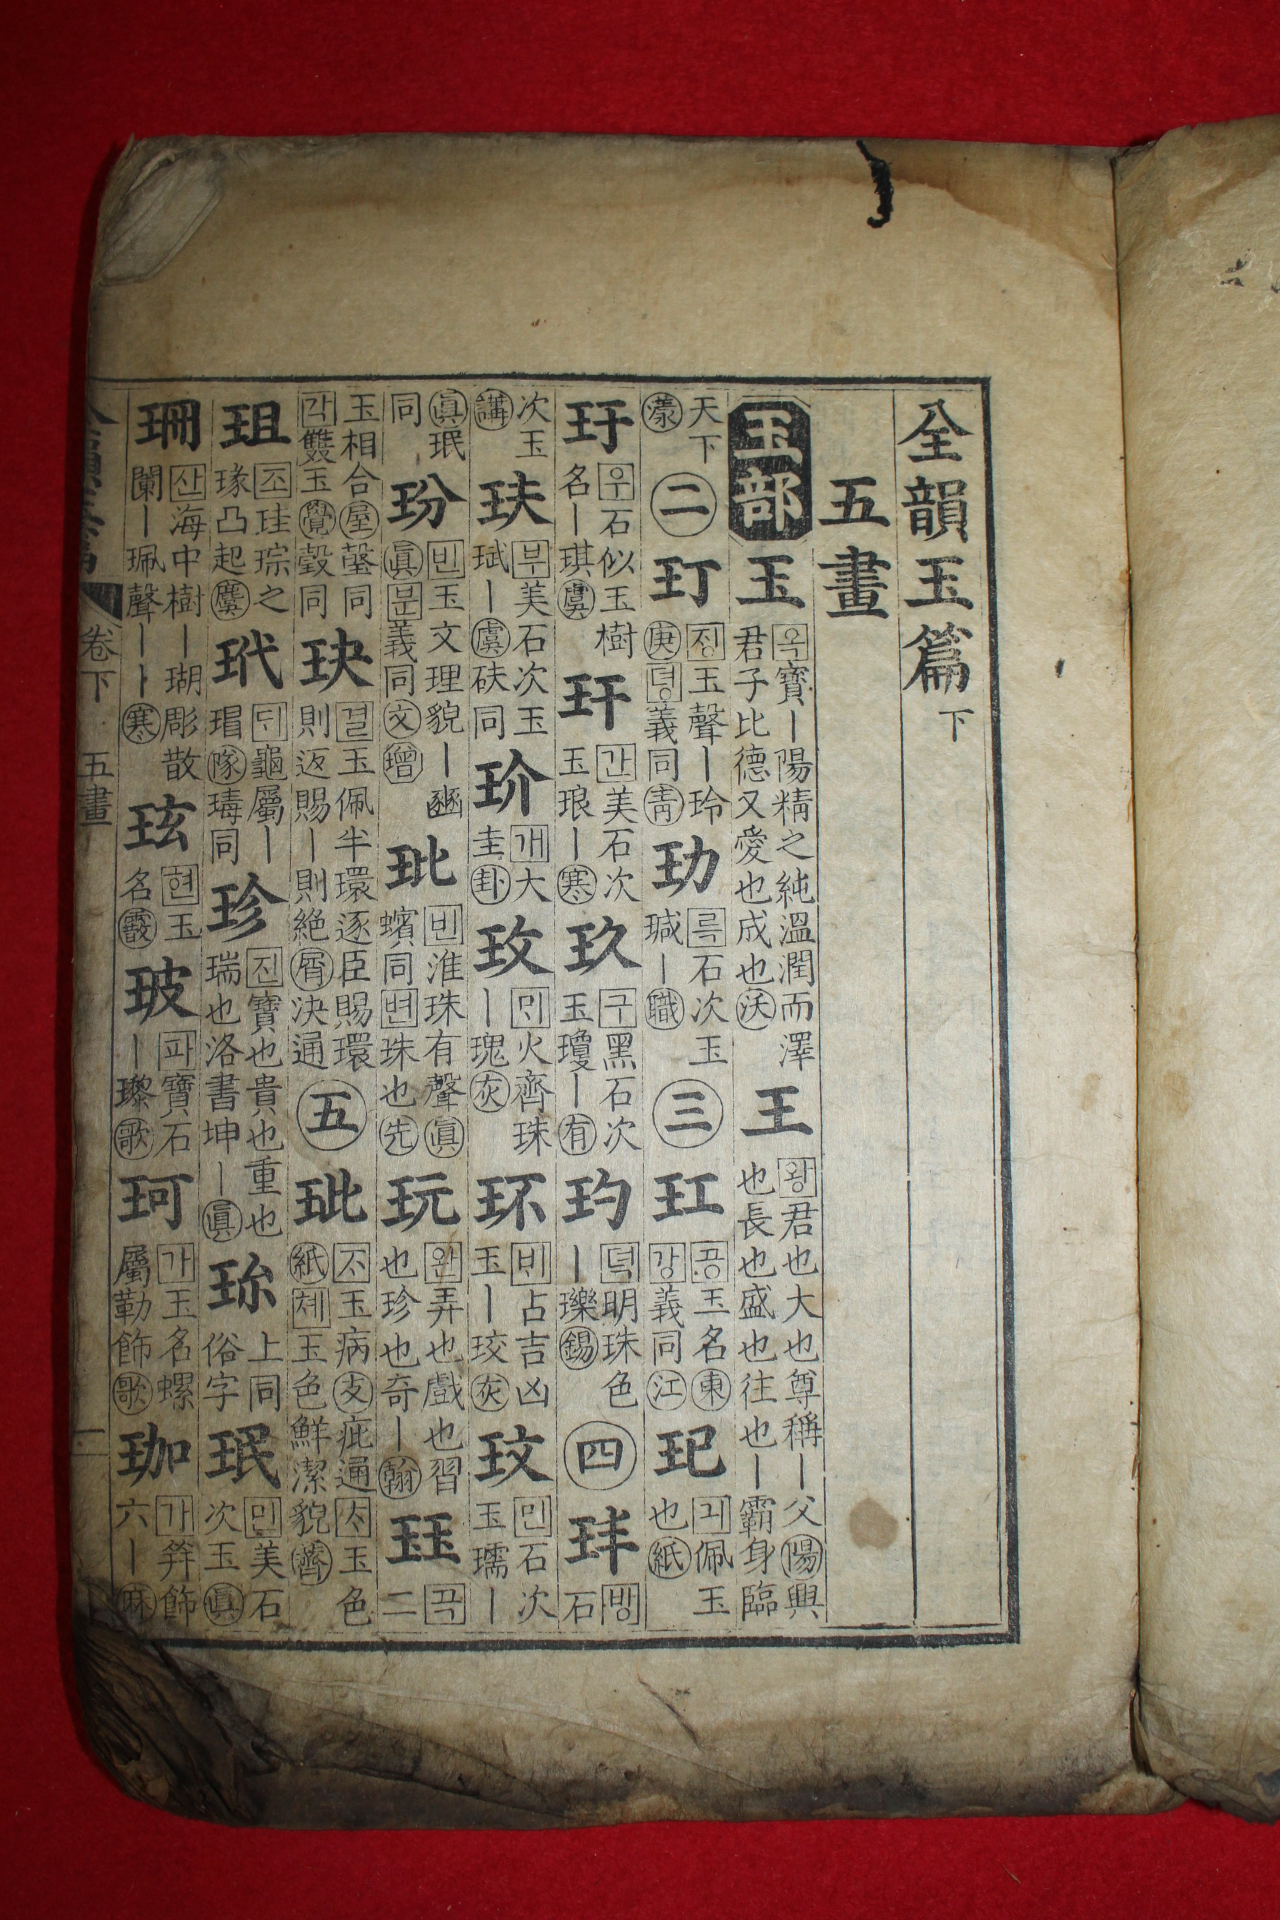 全韻玉篇 下
五畫
玉部 玉 옥寶ㅣ陽精之純溫潤而澤君子比德又愛也成也沃 王 왕君也大也尊稱ㅣ父陽興也長也盛也往也ㅣ霸身臨
天下漾 二 玎 졍玉聲ㅣ玲庚뎡義同靑 玏 륵石次玉瑊ㅣ職 三 玒 공玉名東강義同江 玘 긔佩玉也紙
玗 우石似玉樹名ㅣ琪虞 玕 간美石次玉琅ㅣ寒 玖 구黑石次玉瓊ㅣ有 玓 뎍明珠色ㅣ瓅錫 四 玤 방石
次玉講 玞 부美石次玉珷ㅣ虞砆同 玠 개大圭卦 玫 ᄆᆡ火齊珠ㅣ瑰灰 玶 ᄇᆡ占吉凶玉ㅣ珓灰 玟 민石次玉瓀ㅣ
眞珉同 玢 빈玉文理貌ㅣ豳眞분義同文增 玭 빈淮珠有聲眞蠙同변珠也先 玩 완弄也戲也習也珍也奇ㅣ翰 玨 곡二
玉相合屋瑴同각雙玉覺瑴同 玦 결玉佩半環逐臣賜環則返賜ㅣ則絶屑決通 五 玼 ᄌᆞ玉病支疵通ᄎᆞ玉色紙쳬玉色鮮潔貌薺
珇 조珪琮之瑑凸起麌 玳 ᄃᆡ龜屬ㅣ瑁隊瑇同 珍 진寶也貴也重也瑞也洛書坤ㅣ眞 珎 上同俗字 珉 민美石次玉眞
珊 산海中樹ㅣ瑚彫散闌ㅣ珮聲ㅣㅣ寒 玹 현玉名霰 玻 파寶石ㅣ瓈歌 珂 가玉名螺屬勒飾歌 珈 가笄飾六ㅣ麻
卷下 五畫 一